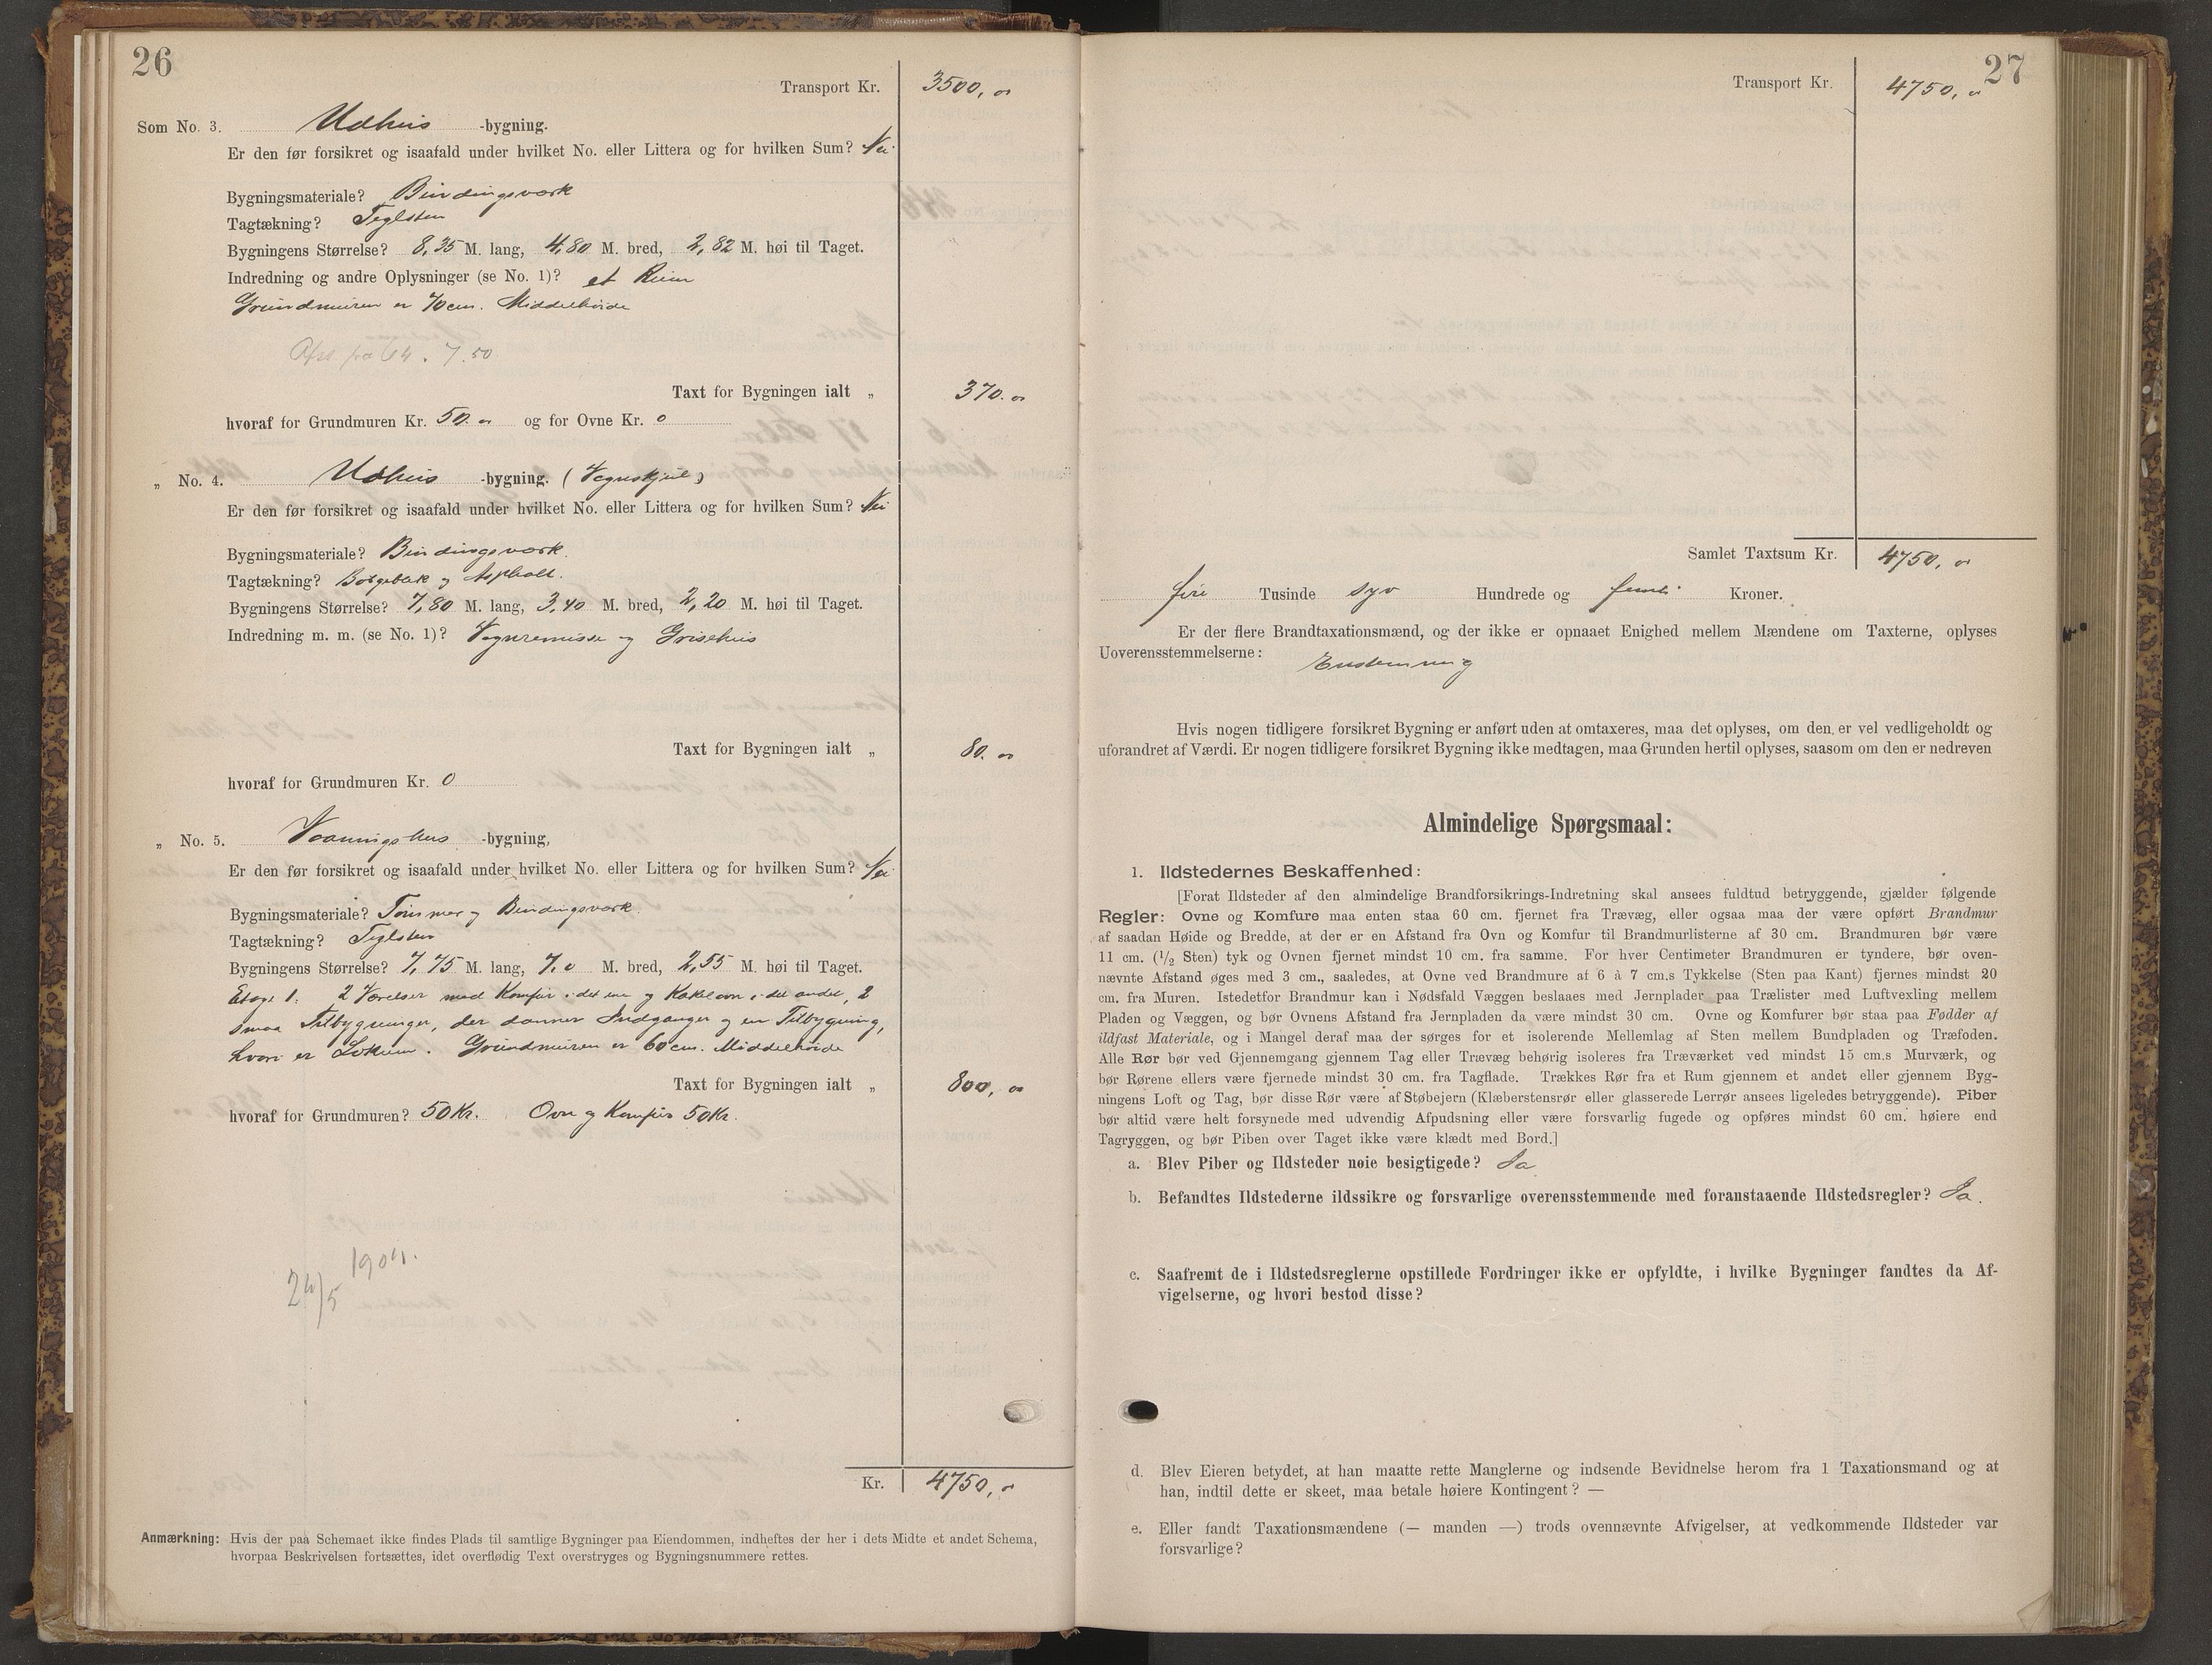 26
Transport Kr. 3500, 00
Som No. 3. Udhus -bygning.
Er den før forsikret og isaafald under hvilket No. eller Littera og for hvilken Sum? Nei
Bygningsmateriale? Bindingsværk
Tagtækning? Teglsten
Bygningens Størrelse? 8,35 M. lang, 4,80 M. bred, 2,82 M. høi til Taget.
Indredning og andre Oplysninger (se No. 1)? et Rum
Grundmuren er 70 cm. Middelhøide
7.50
Taxt for Bygningen ialt „ 370. 00
hvoraf for Grundmuren Kr. 50. 00 og for Ovne Kr. 0
„ No. 4. Udhus -bygning. (Vognskjul)
Er den før forsikret og isaafald under hvilket No. eller Littera og for hvilken Sum? Nei
Bygningsmateriale? Bindingsværk.
Tagtækning? og Asphalt.
Bygningens Størrelse? 7,80 M. lang, 3,40 M. bred, 2,20 M. høi til Taget.
Indredning m. m. (se No. 1)? Vognremisse og Grisehus
Taxt for Bygningen ialt „ 80. 00
hvoraf for Grundmuren Kr. 0
„ No. 5. Vaaningshus -bygning,
Er den før forsikret og isaafald under hvilket No. eller Littera og for hvilken Sum? Nei
Bygningsmateriale? Tømmer og Bindingsværk.
Tagtækning? Teglsten
Bygningens Størrelse? 7,75 M. lang, 7,0 M. bred, 2,55 M. høi til Taget.
Etage 1: 2 Værelser med Komfur i det ene og Kakkelovn i det andet, 2
smaa Tilbygninger, der danner Indganger og en Tilbygning,
hvori er Lokum. Grundmuren er 60 cm. Middelhøide
Taxt for Bygningen ialt „ 800, 00
hvoraf for Grundmuren? 50 Kr. Ovn og Komfur 50 Kr.
24/5 1904.
Kr. 4750, 00
Anmærkning: Hvis der paa Schemaet ikke findes Plads til samtlige Bygninger paa Eiendommen, indheftes der her i dets Midte et andet Schema,
hvorpaa Beskrivelsen fortsættes, idet overflødig Text overstryges og Bygningsnummere rettes.
27
Transport Kr. 4750, 00
Samlet Taxtsum Kr. 4750, 00
fire Tusinde syv Hundrede og femti Kroner.
Er der flere Brandtaxationsmænd, og der ikke er opnaaet Enighed mellem Mændene om Taxterne, oplyses
Uoverensstemmelserne: Enstemmig
Hvis nogen tidligere forsikret Bygning er anført uden at omtaxeres, maa det oplyses, om den er vel vedligeholdt og
uforandret af Værdi. Er nogen tidligere forsikret Bygning ikke medtagen, maa Grunden hertil oplyses, saasom om den er nedreven
Almindelige Spørgsmaal:
1. Ildstedernes Beskaffenhed:
[Forat Ildsteder af den almindelige Brandforsikrings-Indretning skal ansees fuldtud betryggende, gjælder følgende
Regler: Ovne og Komfure maa enten staa 60 cm. fjernet fra Trævæg, eller ogsaa maa der være opført Brandmur
af saadan Høide og Bredde, at der er en Afstand fra Ovn og Komfur til Brandmurlisterne af 30 cm. Brandmuren bør være
11 cm. (1/2 Sten) tyk og Ovnen fjernet mindst 10 cm. fra samme. For hver Centimeter Brandmuren er tyndere, bør oven-
nævnte Afstand øges med 3 cm., saaledes, at Ovne ved Brandmure af 6 à 7 cm.s Tykkelse (Sten paa Kant) fjernes mindst 20
cm. fra Muren. Istedetfor Brandmur kan i Nødsfald Væggen beslaaes med Jernplader paa Trælister med Luftvexling mellem
Pladen og Væggen, og bør Ovnens Afstand fra Jernpladen da være mindst 30 cm. Ovne og Komfurer bør staa paa Fødder af
ildfast Materiale, og i Mangel deraf maa der sørges for et isolerende Mellemlag af Sten mellem Bundpladen og Træfoden.
Alle Rør bør ved Gjennemgang gjennem Tag eller Trævæg behørig isoleres fra Træværket ved mindst 15 cm.s Murværk, og
bør Rørene ellers være fjernede mindst 30 cm. fra Tagflade. Trækkes Rør fra et Rum gjennem et andet eller gjennem Byg-
ningens Loft og Tag, bør disse Rør være af Støbejern (Klæberstensrør eller glasserede Lerrør ansees ligeledes betryggende). Piber
bør altid være helt forsynede med udvendig Afpudsning eller være forsvarlig fugede og opføres mindst 60 cm. høiere end
Tagryggen, og bør Piben over Taget ikke være klædt med Bord.]
a. Blev Piber og Ildsteder nøie besigtigede? Ja
b. Befandtes Ildstederne ildssikre og forsvarlige overensstemmende med foranstaaende Ildstedsregler? Ja.
c. Saafremt de i Ildstedsreglerne opstillede Fordringer ikke er opfyldte, i hvilke Bygninger fandtes da Af-
vigelserne, og hvori bestod disse?
d. Blev Eieren betydet, at han maatte rette Manglerne og indsende Bevidnelse herom fra 1 Taxationsmand og at
han, indtil dette er skeet, maa betale høiere Kontingent? —
e. Eller fandt Taxationsmændene (— manden —) trods ovennævnte Afvigelser, at vedkommende Ildsteder var
forsvarlige?